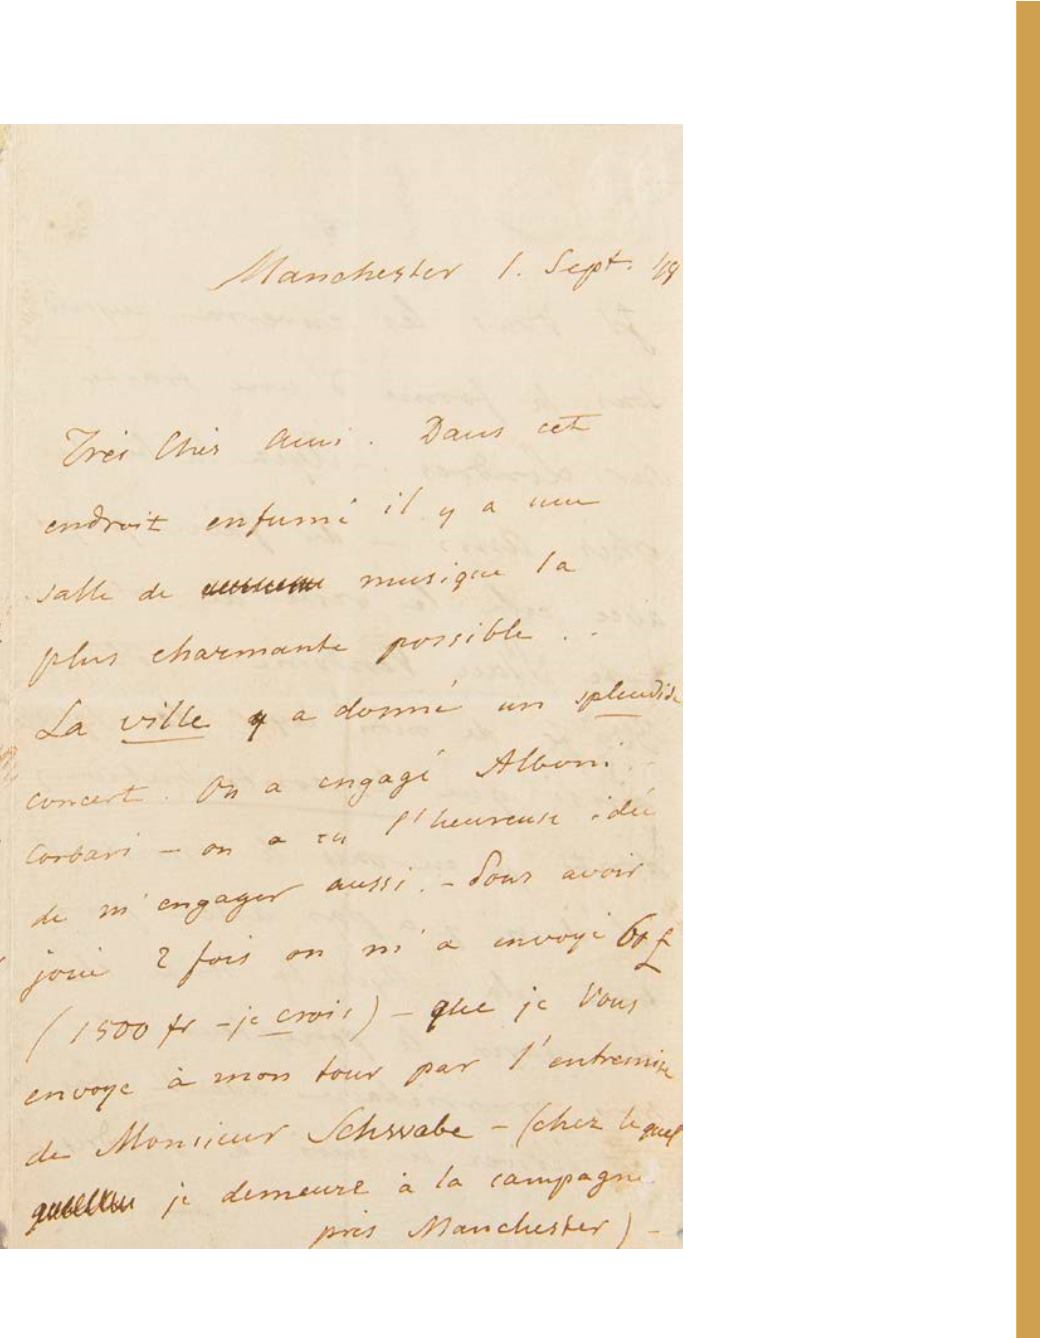 Manchester 1. Sept. 48
Très Cher Ami. Dans cet
endroit enfumé il y a une
salle de musique la
plus charmante possible . .
La ville y a donné un splendide
concert. On a engagé Alboni
Corbari – on a eu l'heureuse idée
de m'engager aussi. – Pour avoir
joué 2 fois on m'a envoyé 60 £
(1500 fr – je crois) – que je Vous
envoye à mon tour par l'entremise
de Monsieur Schwabe – (chez lequel
je demeure à la campagne
près Manchester) –